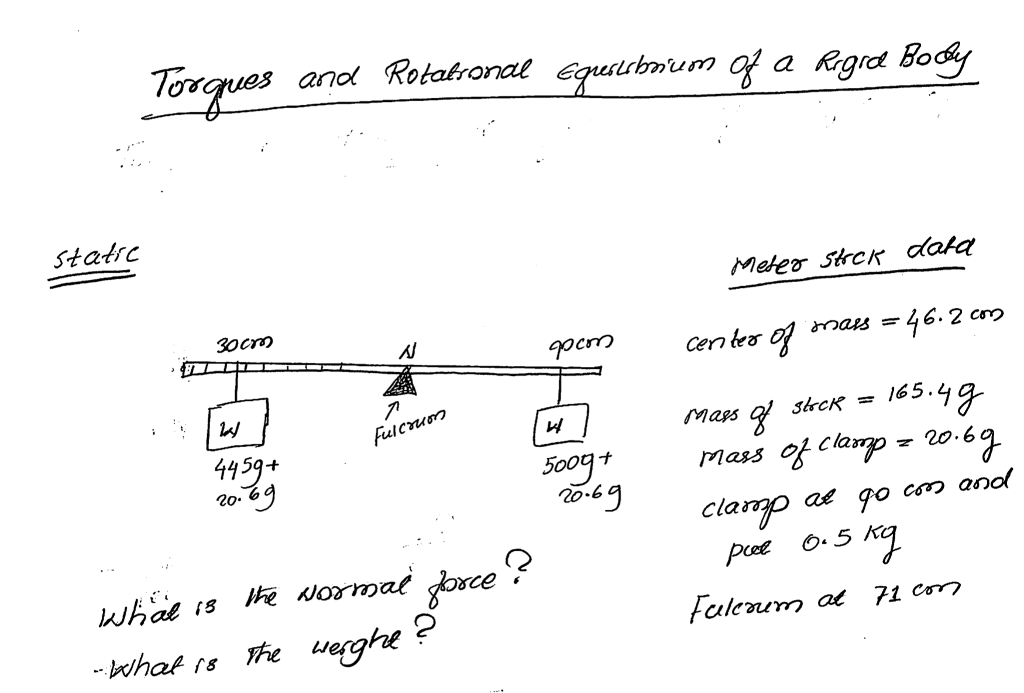 Torques and Rotational Equilibrium of a Rigid Body
static
Meter stick data
30cm
N
90cm
center of mass = 46.2 cm
Fulcrum
W
W
mass of stick = 165.4g
445g+
20.6g
500g+
20.6g
mass of clamp = 20.6g
clamp at 90 cm and
put 0.5 kg
Fulcrum at 71 cm
What is the Normal force?
- What is the weight?